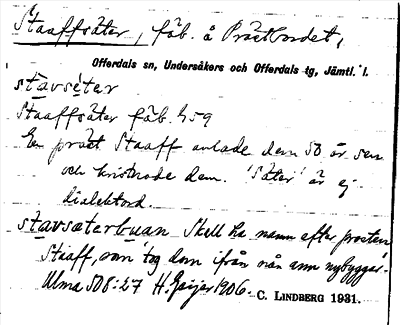 Staaffsäter, fäb. å Prästbordet,
Offerdals sn, Undersåkers och Offerdals tg, Jämtl. l.
stavséter
Staaffsäter fäb. 459
En präst Staaff anlade dem 50 år sen
och kristnade dem. 'Säter' är ej
dialektord.
stavsæterbuan Skell ha namn efter prosten
Staaff, som tog dem ifrån nån ann nybyggar.
Ulma 508:27 H. Geijer 1906. C. LINDBERG 1931.